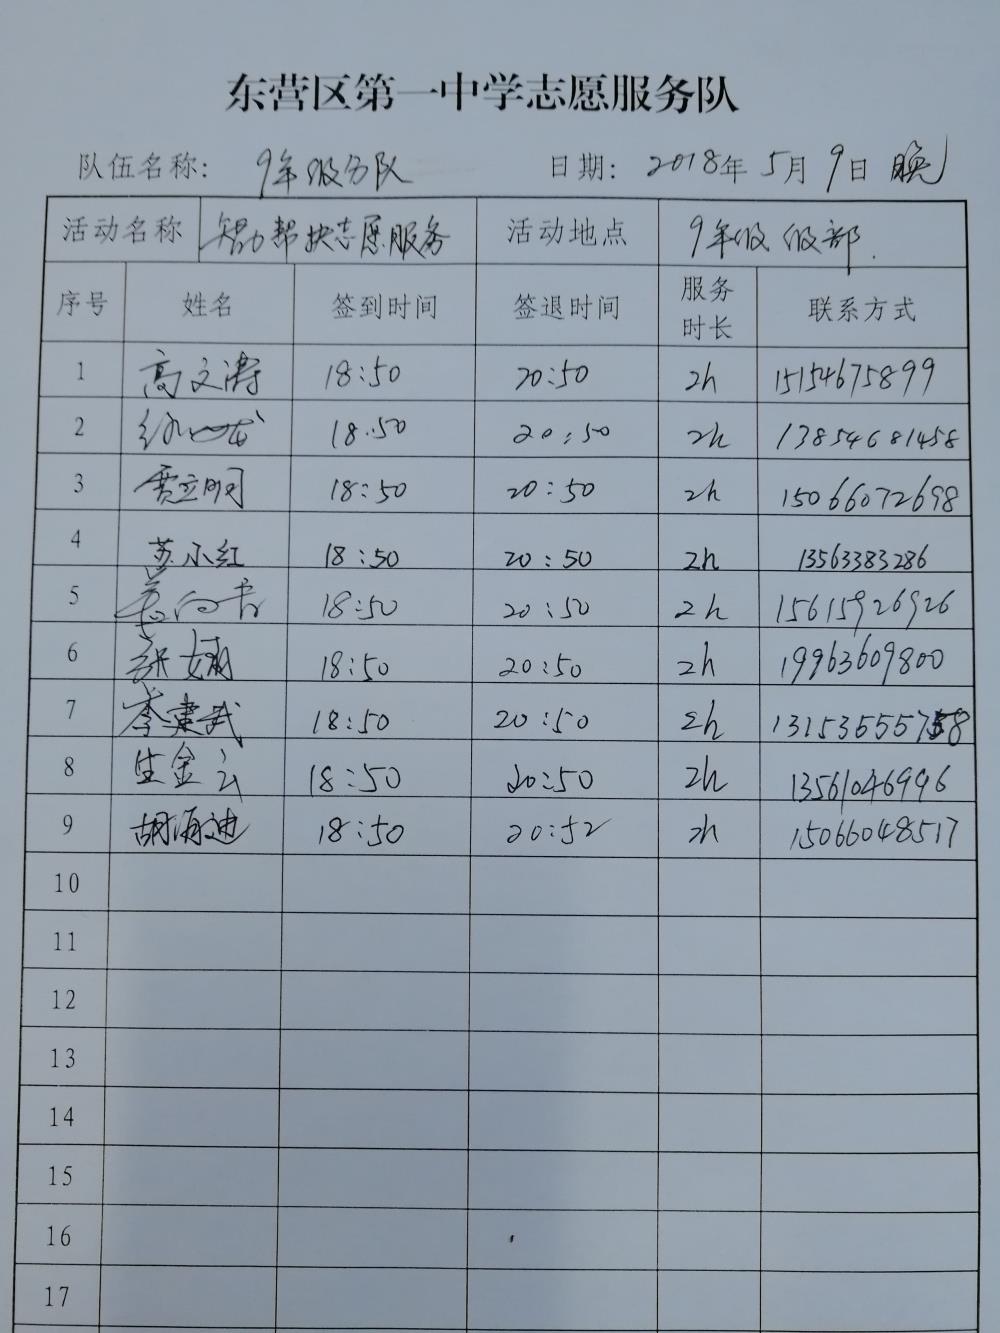 东营区第一中学志愿服务队
队伍名称: 9年级分队 日期: 2018年5月9日 晚
活动名称 智力帮扶志愿服务 活动地点 9年级级部.
序号 姓名 签到时间 签退时间 服务时长 联系方式
1 高文涛 18:50 20:50 2h 15154675899
2 18:50 20:50 2h 13854681458
3 贾立明 18:50 20:50 2h 15066072698
4 苏小红 18:50 20:50 2h 13563383286
5 18:50 20:50 2h 15615926926
6 张娟 18:50 20:50 2h 19963609800
7 李建武 18:50 20:50 2h
8 生金云 18:50 20:50 2h 13561046996
9 胡海迪 18:50 20:52 2h 15066048517
10
11
12
13
14
15
16
17